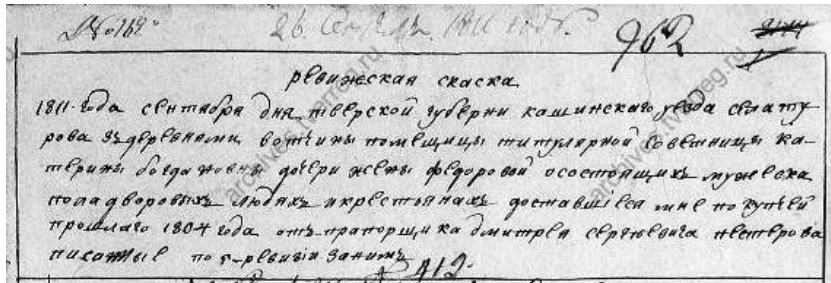 № 162
26 Сентября 1811 года.
962
ревижская скаска
1811. года сентября дня тверской губерни кашинскаго уезда села ту
рова здеревнями вотчины помещицы титулярной советницы ка-
терины богдановны дочери жены федоровой осостоящихъ мужеска
пола дворовыхъ людяхъ икрестьянахъ доставшися мне покупчей
прошлаго 1804 года отъ прапорщика дмитрея сергеевича нестерова
писанные по 5-ревизии занимъ
412.
archives.tverreg.ru
archives.tverreg.ru